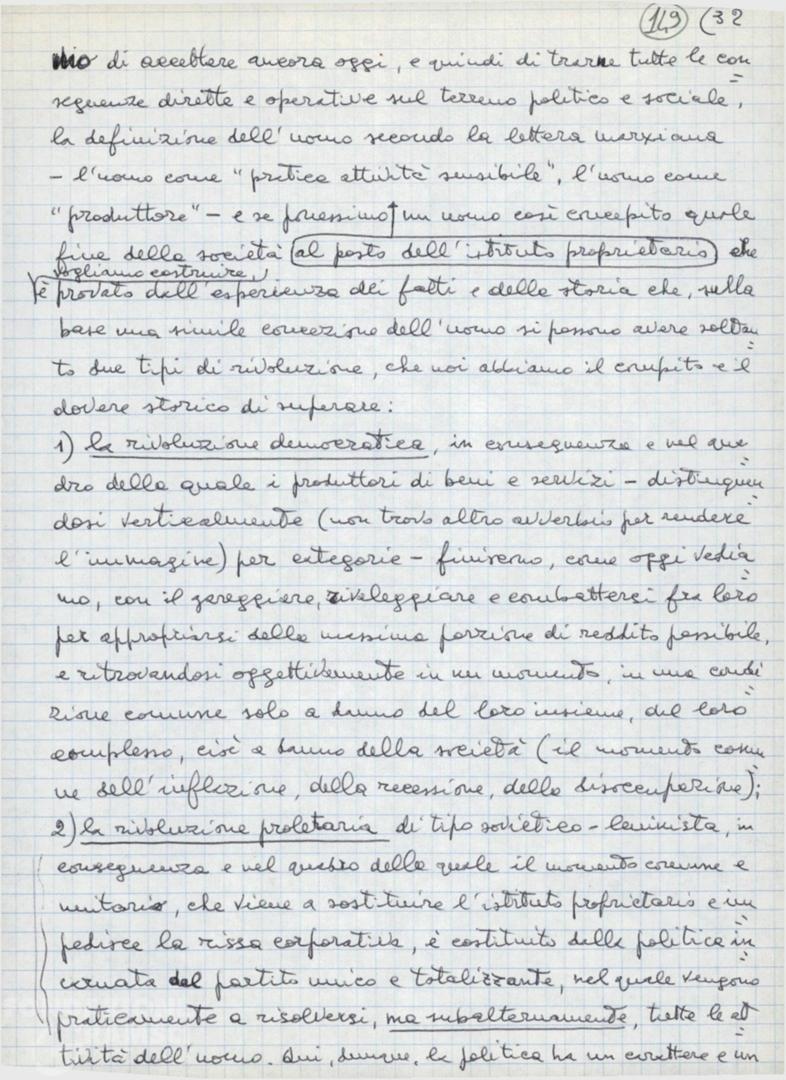 149 (32
mo di accettare ancora oggi, e quindi di trarne tutte le con=
seguenze dirette e operative sul terreno politico e sociale,
la definizione dell'uomo secondo la lettera marxiana
- l'uomo come "pratica attività sensibile", l'uomo come
"produttore" - e se ponessimo un uomo così concepito quale
fine della società (al posto dell'istituto proprietario) che
vogliamo costruire,
è provato dall'esperienza dei fatti e della storia che, sulla
base una simile concezione dell'uomo si possono avere soltan=
to due tipi di rivoluzione, che noi abbiamo il compito e il
dovere storico di superare:
1) la rivoluzione democratica, in conseguenza e nel qua=
dro della quale i produttori di beni e servizi - distinguen=
dosi verticalmente (non trovo altro avverbio per rendere
l'immagine) per categorie - finiscono, come oggi vedia=
mo, con il gareggiare, rivaleggiare e combattersi fra loro
per appropriarsi della massima porzione di reddito possibile,
e ritrovandosi oggettivamente in un momento, in una condi=
zione comune solo a danno del loro insieme, del loro
complesso, cioè a danno della società (il momento comu=
ne dell'inflazione, della recessione, della disoccupazione);
2) la rivoluzione proletaria di tipo sovietico-leninista, in
conseguenza e nel quadro della quale il momento comune e
unitario, che viene a sostituire l'istituto proprietario e im=
pedisce la rissa corporativa, è costituito dalla politica in=
carnata dal partito unico e totalizzante, nel quale vengono
praticamente a risolversi, ma subalternamente, tutte le at=
tività dell'uomo. Qui, dunque, la politica ha un carattere e un